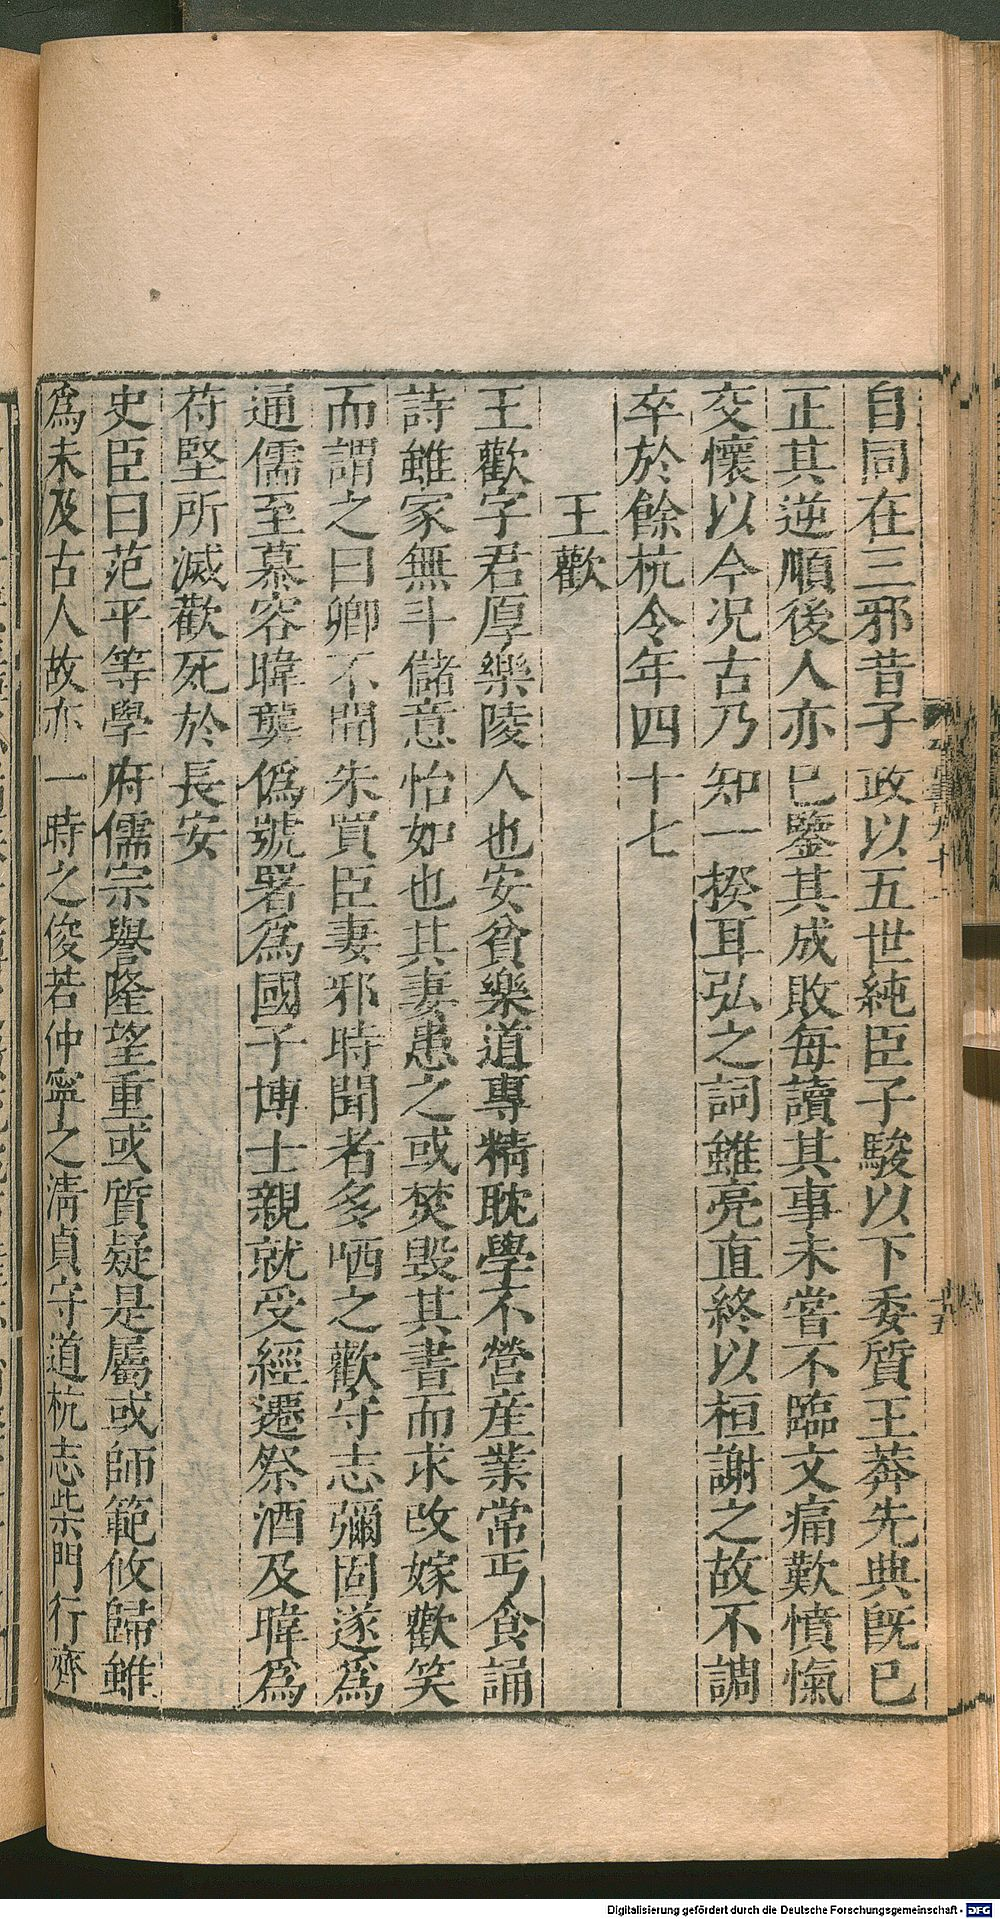 自同在三邪昔子政以五世純臣子駿以下委質王莽先典旣已
正其逆順後人亦已鑒其成敗每讀其事未嘗不臨文痛歎憤愾
交懷以今况古乃知一揆耳弘之詞雖亮直終以桓謝之故不調
卒於餘杭令年四十七
王歡
王歡字君厚樂陵人也安貧樂道專精耽學不營産業常丐食誦
詩雖家無斗儲意怡如也其妻患之或焚毀其書而求改嫁歡笑
而謂之曰卿不聞朱買臣妻邪時聞者多哂之歡守志彌固遂爲
通儒至慕容暐襲僞號署爲國子博士親就受經遷祭酒及暐爲
苻堅所滅歡死於長安
史臣曰范平等學府儒宗譽隆望重或質疑是屬或師範攸歸雖
爲未及古人故亦一時之俊若仲寧之清貞守道杭志柴門行齊
Digitalisierung gefördert durch die Deutsche Forschungsgemeinschaft - DFG